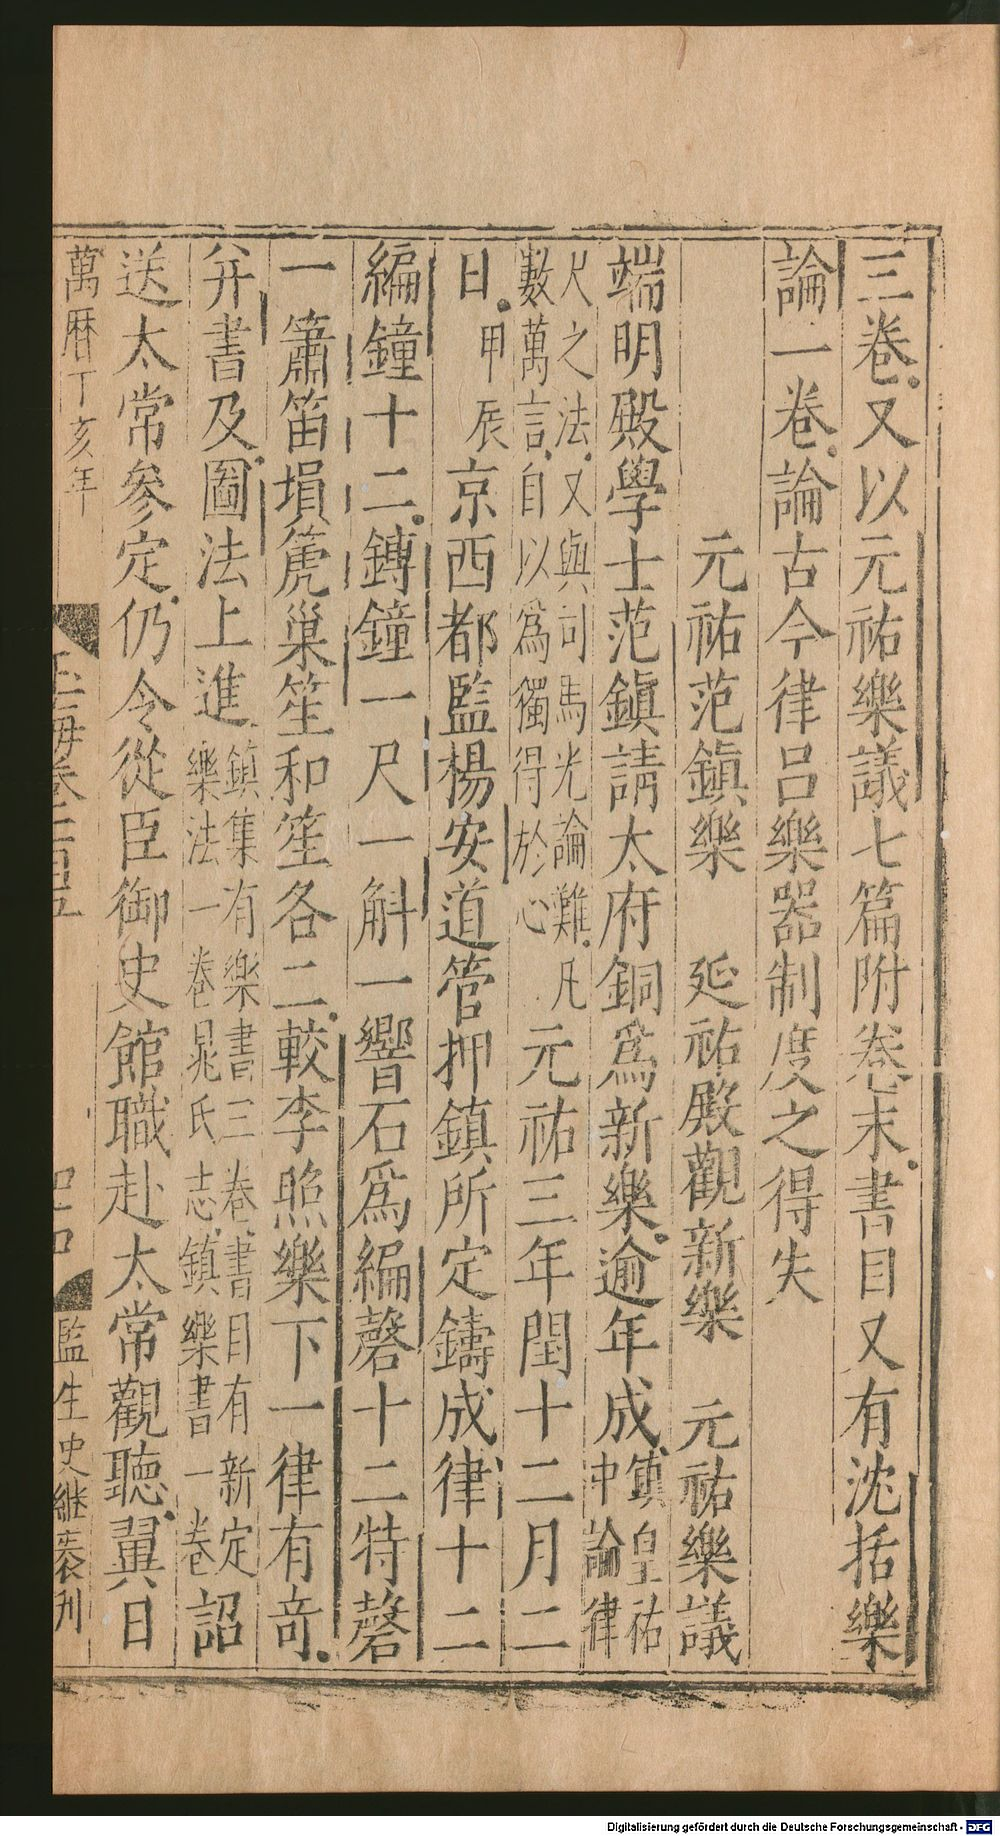 三卷又以元祐樂議七篇附卷末書目又有沈括樂
論一卷論古今律呂樂器制度之得失
元祐范鎭樂 延祐殿觀新樂 元祐樂議
端明殿學士范鎭請太府銅爲新樂逾年成鎮皇祐
中論律
尺之法又與司馬光論難凡
數萬言自以爲獨得於心元祐三年閏十二月二
日甲辰京西都監楊安道管押鎮所定鑄成律十二
編鐘十二鎛鐘一尺一斛一響石爲編磬十二特磬
一簫笛塤箎巢笙和笙各二較李照樂下一律有奇
并書及圖法上進鎮集有樂書三卷書目有新定
樂法一卷晁氏志鎮樂書一卷詔
送太常參定仍令從臣御史館職赴太常觀聽翼日
萬曆丁亥年
監生史継裘刋
Digitalisierung gefördert durch die Deutsche Forschungsgemeinschaft - DFG